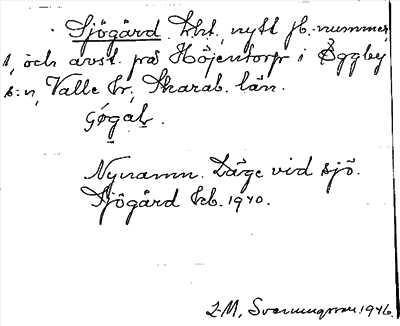 Sjögård. Lht, nytt jb. nummer,
1, och avst. på Höjentorp i Eggby
s:n, Valle hr, Skarab. län.
Nynamn. Läge vid sjö.
Sjögård kb. 1940.
L-M, Svanungsson 1946.